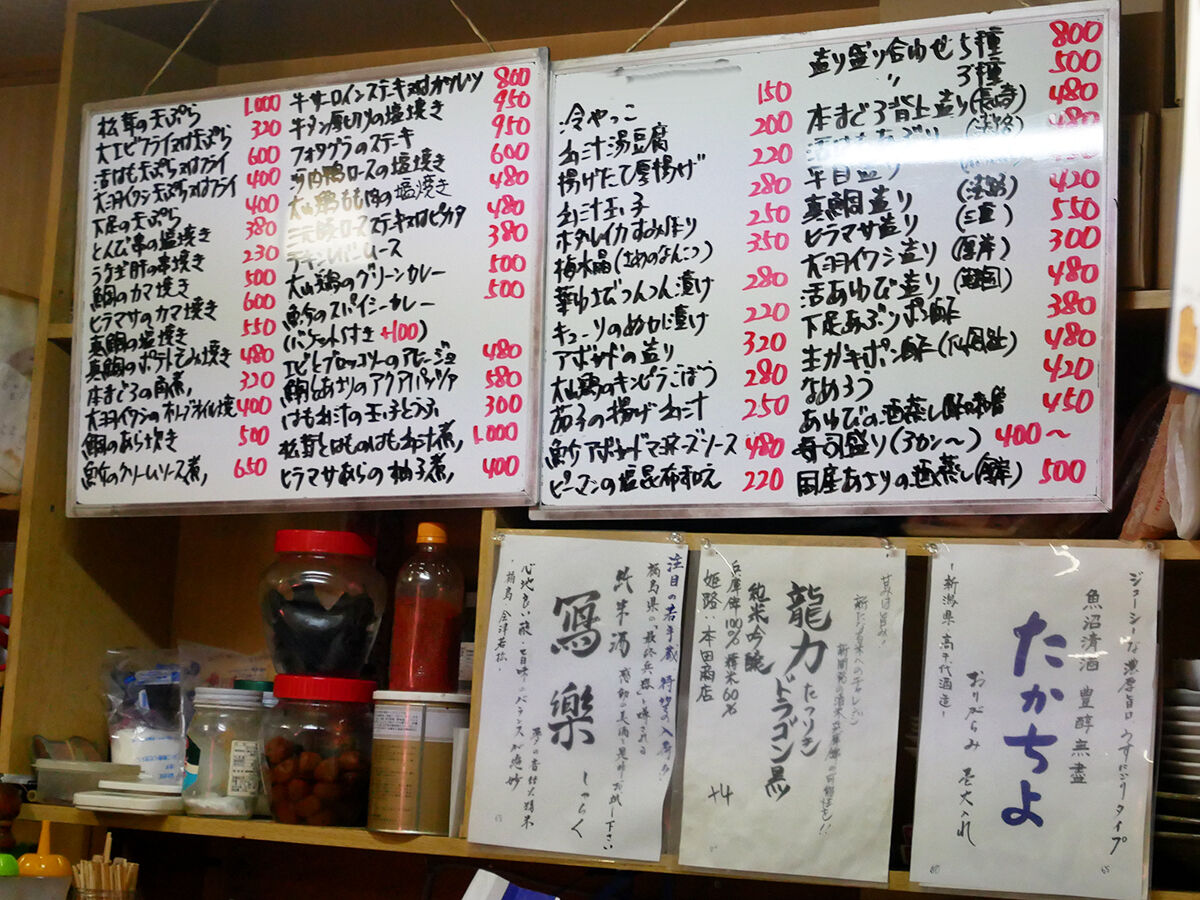 松茸の天ぷら 1.000
大エビフライ又は天ぷら 320
活はも天ぷら又はフライ 600
大羽イワシ天ぷら又はフライ 400
下足の天ぷら 400
とんび串の塩焼き 380
うなぎ肝の串焼き 230
鯛のカマ焼き 500
ヒラマサのカマ焼き 600
真鯛の塩焼き 550
真鯛のポワレ 480
本まぐろの角煮 320
大羽イワシのオリーブオイル焼 400
鯛のあら炊き 500
魚介クリームソース煮 650
牛サーロインステキ又はカツレツ 800
牛タン厚切りの塩焼き 950
フォアグラのステキ 950
河内鴨ロースの塩焼き 600
大山鶏もも肉の塩焼き 480
三元豚ロースステキ又はピカタ 480
チキンレバームース 380
大山鶏のグリーンカレー 500
魚介のスパイシーカレー 500
(バケット付き +100)
エビとブロッコリーのアヒージョ 480
鯛とあさりのアクアパッツァ 580
はも出汁の玉子とうふ 300
松茸とはものはも出汁煮 1.000
ヒラマサあらの柚子煮 400
冷やっこ 150
出汁湯豆腐 200
揚げたて厚揚げ 220
出汁玉子 280
ホタルイカすみ作り 250
梅水晶(さめのなんこつ) 350
葉わさびつんつん漬け 280
キューリのぬか漬け 220
アボカドの造り 320
大山鶏のキンピラごぼう 280
茄子の揚げ出汁 250
魚介アボカドマヨネーズソース 480
ピーマンの塩昆布和え 220
造り盛り合わせ5種 800
〃 3種 500
本まぐろ背上造り(長崎) 480
活はもあぶり (淡路) 480
平目造り
真鯛造り (淡路) 420
ヒラマサ造り (三重) 550
大羽イワシ造り (厚岸) 300
活あわび造り (韓国) 480
下足あぶりポン酢 380
生ガキポン酢(仙鳳趾) 480
なめろう 420
あわびの酒蒸し 450
寿司盛り(3カン〜) 400〜
国産あさりの酒蒸し 500
注目の若手蔵 特約の入荷!
福島県の「最終兵器」と噂される
純米酒 感動の美酒を是非お試し下さい
寫樂 しゃらく
夢の香付大精米
心地良い酸・旨味のバランスが絶妙
-福島・会津若松-
甘みは旨み
新たなる米へのチャレンジ
新開発の酒米 兵庫錦の可能性を!!
龍力 たつりき
ドラゴン黒
純米吟醸
兵庫錦100% 精米60%
+4
姫路・本田商店
ジューシーな濃厚旨口 うすにごりタイプ
魚沼清酒 豊醇無盡
たかちよ
おりがらみ 壱火入れ
-新潟県 高千代酒造-